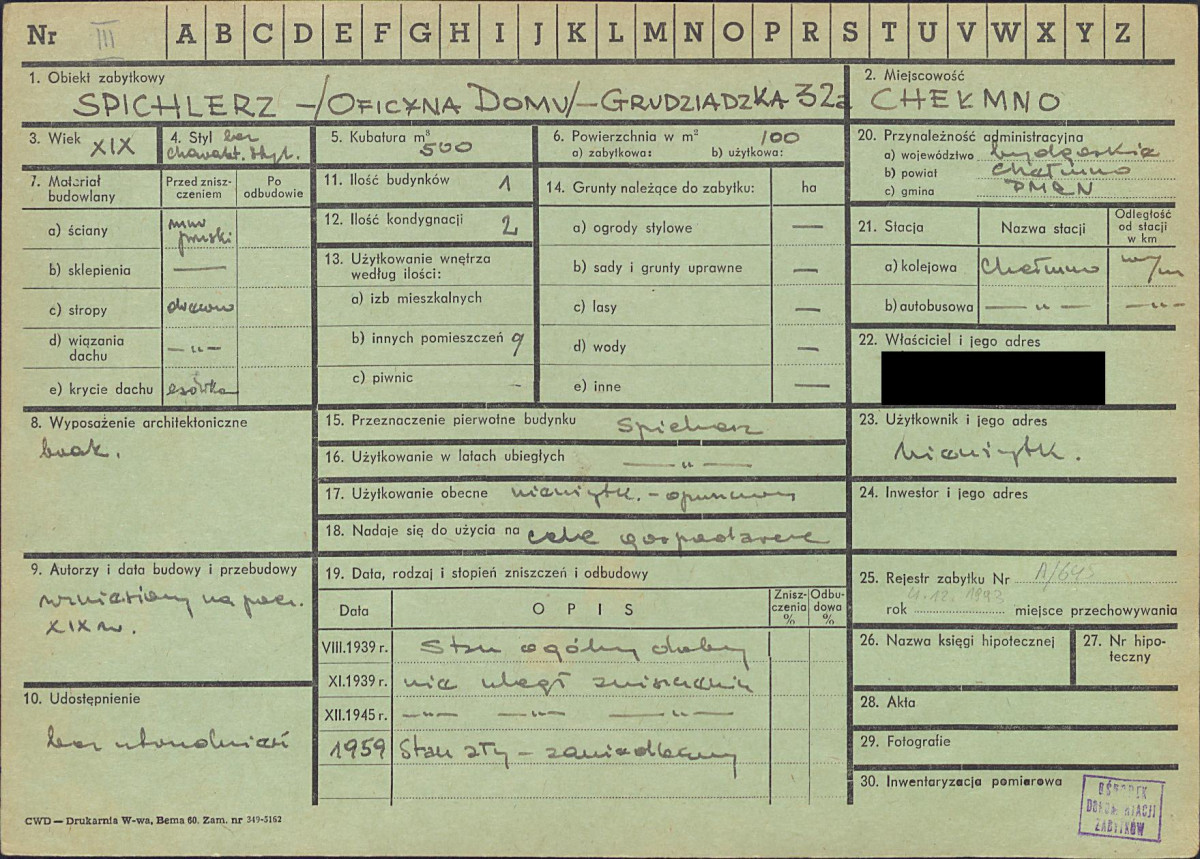 Nr III A B C D E F G H I J K L M N O P R S T U V W X Y Z
1. Obiekt zabytkowy
SPICHLERZ —/OFICYNA DOMU/— GRUDZIADZKA 32a
2. Miejscowość
CHEŁMNO
3. Wiek XIX
4. Styl bez
charakt. styl.
5. Kubatura m³
500
6. Powierzchnia w m² 100
a) zabytkowa: b) użytkowa:
20. Przynależność administracyjna
a) województwo bydgoskie
b) powiat Chełmno
c) gmina PMRN
7. Materiał budowlany
Przed znisz-
czeniem
Po
odbudowie
a) ściany mur
pruski
b) sklepienia —
c) stropy drewno
d) wiązania
dachu —„—
e) krycie dachu esówka
11. Ilość budynków 1
12. Ilość kondygnacji 2
13. Użytkowanie wnętrza
według ilości:
a) izb mieszkalnych
b) innych pomieszczeń 9
c) piwnic -
14. Grunty należące do zabytku: ha
a) ogrody stylowe —
b) sady i grunty uprawne —
c) lasy —
d) wody —
e) inne —
21. Stacja Nazwa stacji
Odległość
od stacji
w km
a) kolejowa Chełmno w/m
b) autobusowa —„— —„—
22. Właściciel i jego adres
8. Wyposażenie architektoniczne
brak.
15. Przeznaczenie pierwotne budynku spichrz
16. Użytkowanie w latach ubiegłych —„—
17. Użytkowanie obecne nieużytk. - opuszczony
18. Nadaje się do użycia na cele gospodarcze
23. Użytkownik i jego adres
nieużytk.
24. Inwestor i jego adres
9. Autorzy i data budowy i przebudowy
wzniesiony na pocz.
XIX w.
10. Udostępnienie
bez utrudnień
19. Data, rodzaj i stopień zniszczeń i odbudowy
Data OPIS
Znisz-
czenia
%
Odbu-
dowa
%
VIII.1939 r. Stan ogólny dobry
XI.1939 r. nie uległ zniszczeniu
XII.1945 r. —„— —„— —„—
1959 Stan zły - zaniedbany
25. Rejestr zabytku Nr A/645
rok 4.12.1993 miejsce przechowywania
26. Nazwa księgi hipotecznej
27. Nr hipo-
teczny
28. Akta
29. Fotografie
30. Inwentaryzacja pomiarowa
OŚRODEK
DOKUMENTACJI
ZABYTKÓW
CWD — Drukarnia W-wa, Bema 60. Zam. nr 349-5162